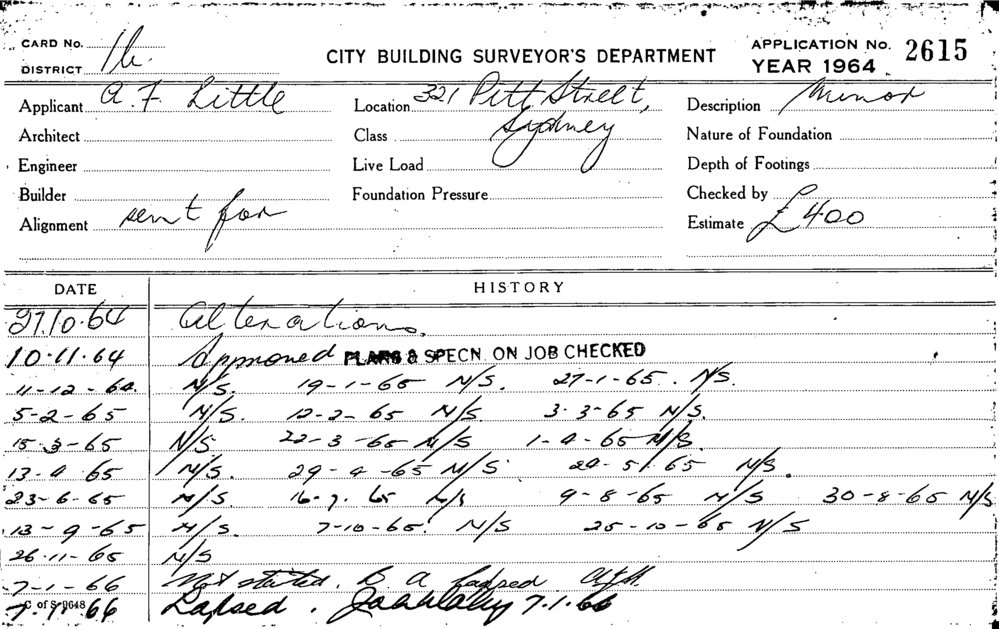 CARD No. 16.
DISTRICT
CITY BUILDING SURVEYOR'S DEPARTMENT
APPLICATION No. 2615
YEAR 1964
Applicant A. F. Little
Location 321 Pitt Street, Sydney
Description Minor
Architect
Class
Nature of Foundation
Engineer
Live Load
Depth of Footings
Builder
Foundation Pressure
Checked by
Alignment sent for
Estimate £400
DATE HISTORY
27.10.64 Alterations.
10.11.64 Approved PLANS & SPECN. ON JOB CHECKED
11-12-64. N/S. 19-1-65 N/S. 27-1-65. N/S.
5-2-65 N/S. 12-2-65 N/S. 3.3-65 N/S.
15.3-65 N/S. 22-3-65 N/S 1-4-65 N/S.
13-4 65 N/S. 29-4-65 N/S. 24-5/65 N/S.
23-6-65 N/S 16.7.65 N/S 9-8-65 N/S 30-8-65 N/S.
13-9-65 N/S. 7-10-65. N/S 25-10-65 N/S
26.11-65 N/S
7-1-66 Not started. B A lapsed
7.1.66 Lapsed. 7.1.66
C of S 9648